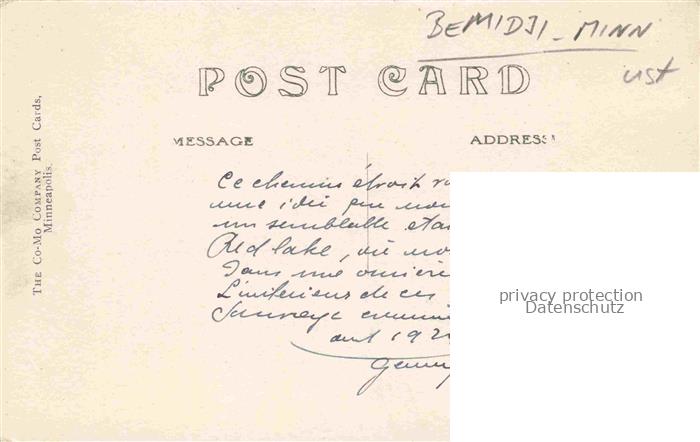 BEMIDJI - MINN
ust
POST CARD
MESSAGE
ADDRESS
THE CO-MO COMPANY Post Cards,
Minneapolis.
Ce chemin étroit
une idée que
un semblable
Red lake, où
Dans une
L'interieur de ces
Sauvage
aout 192
privacy protection
Datenschutz